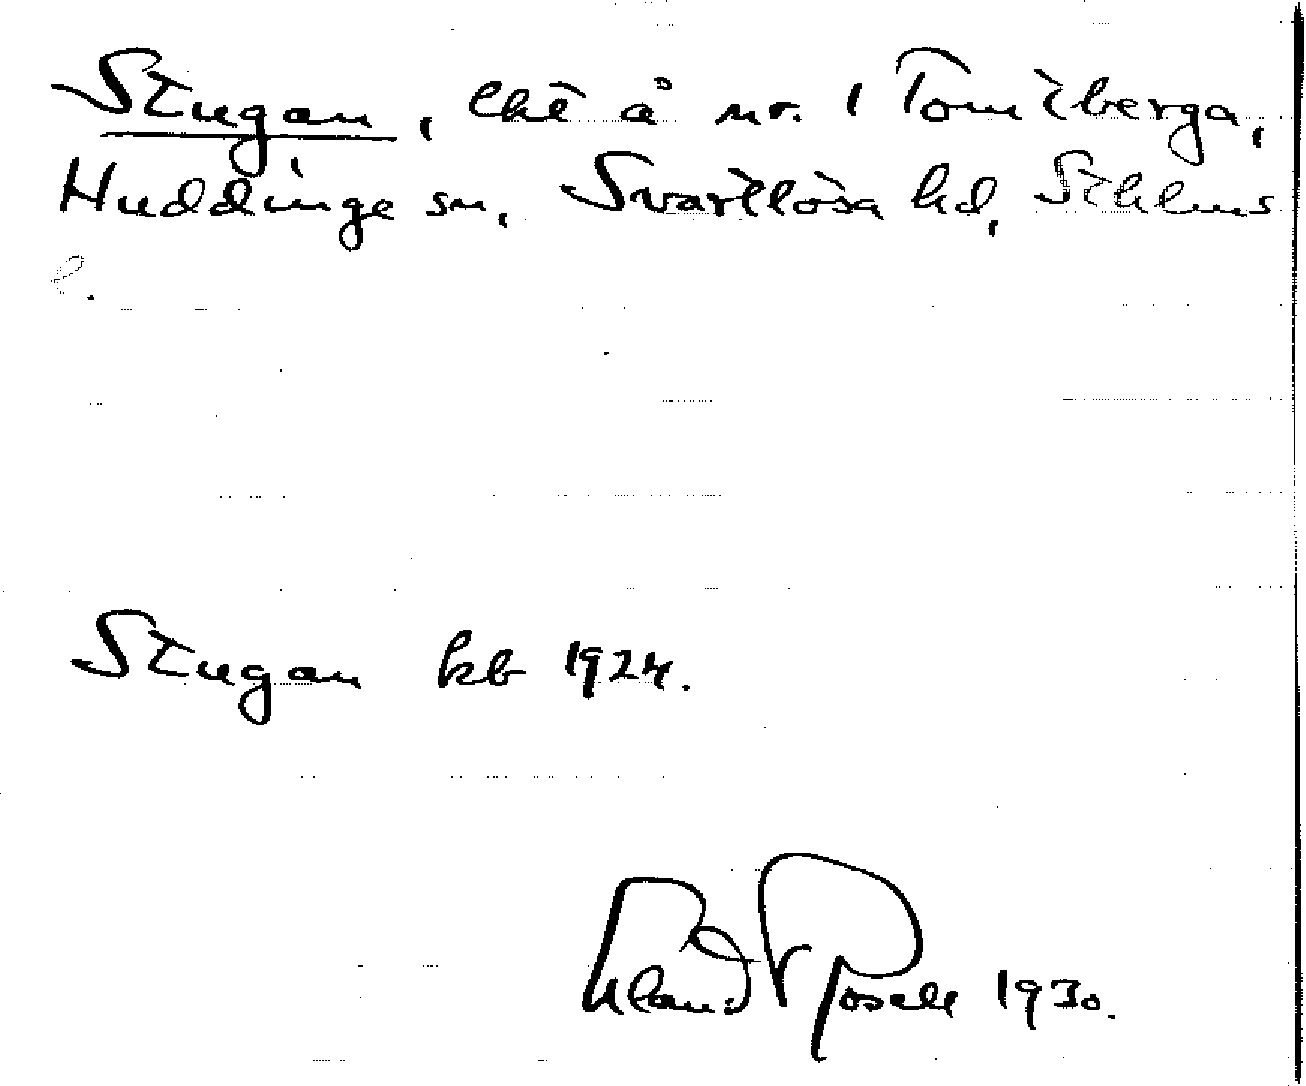 Stugan, lht å nr. 1 Tomtberga,
Huddinge sn, Svartlösa hd, Sthlms
l.
Stugan kb 1924.
1930.